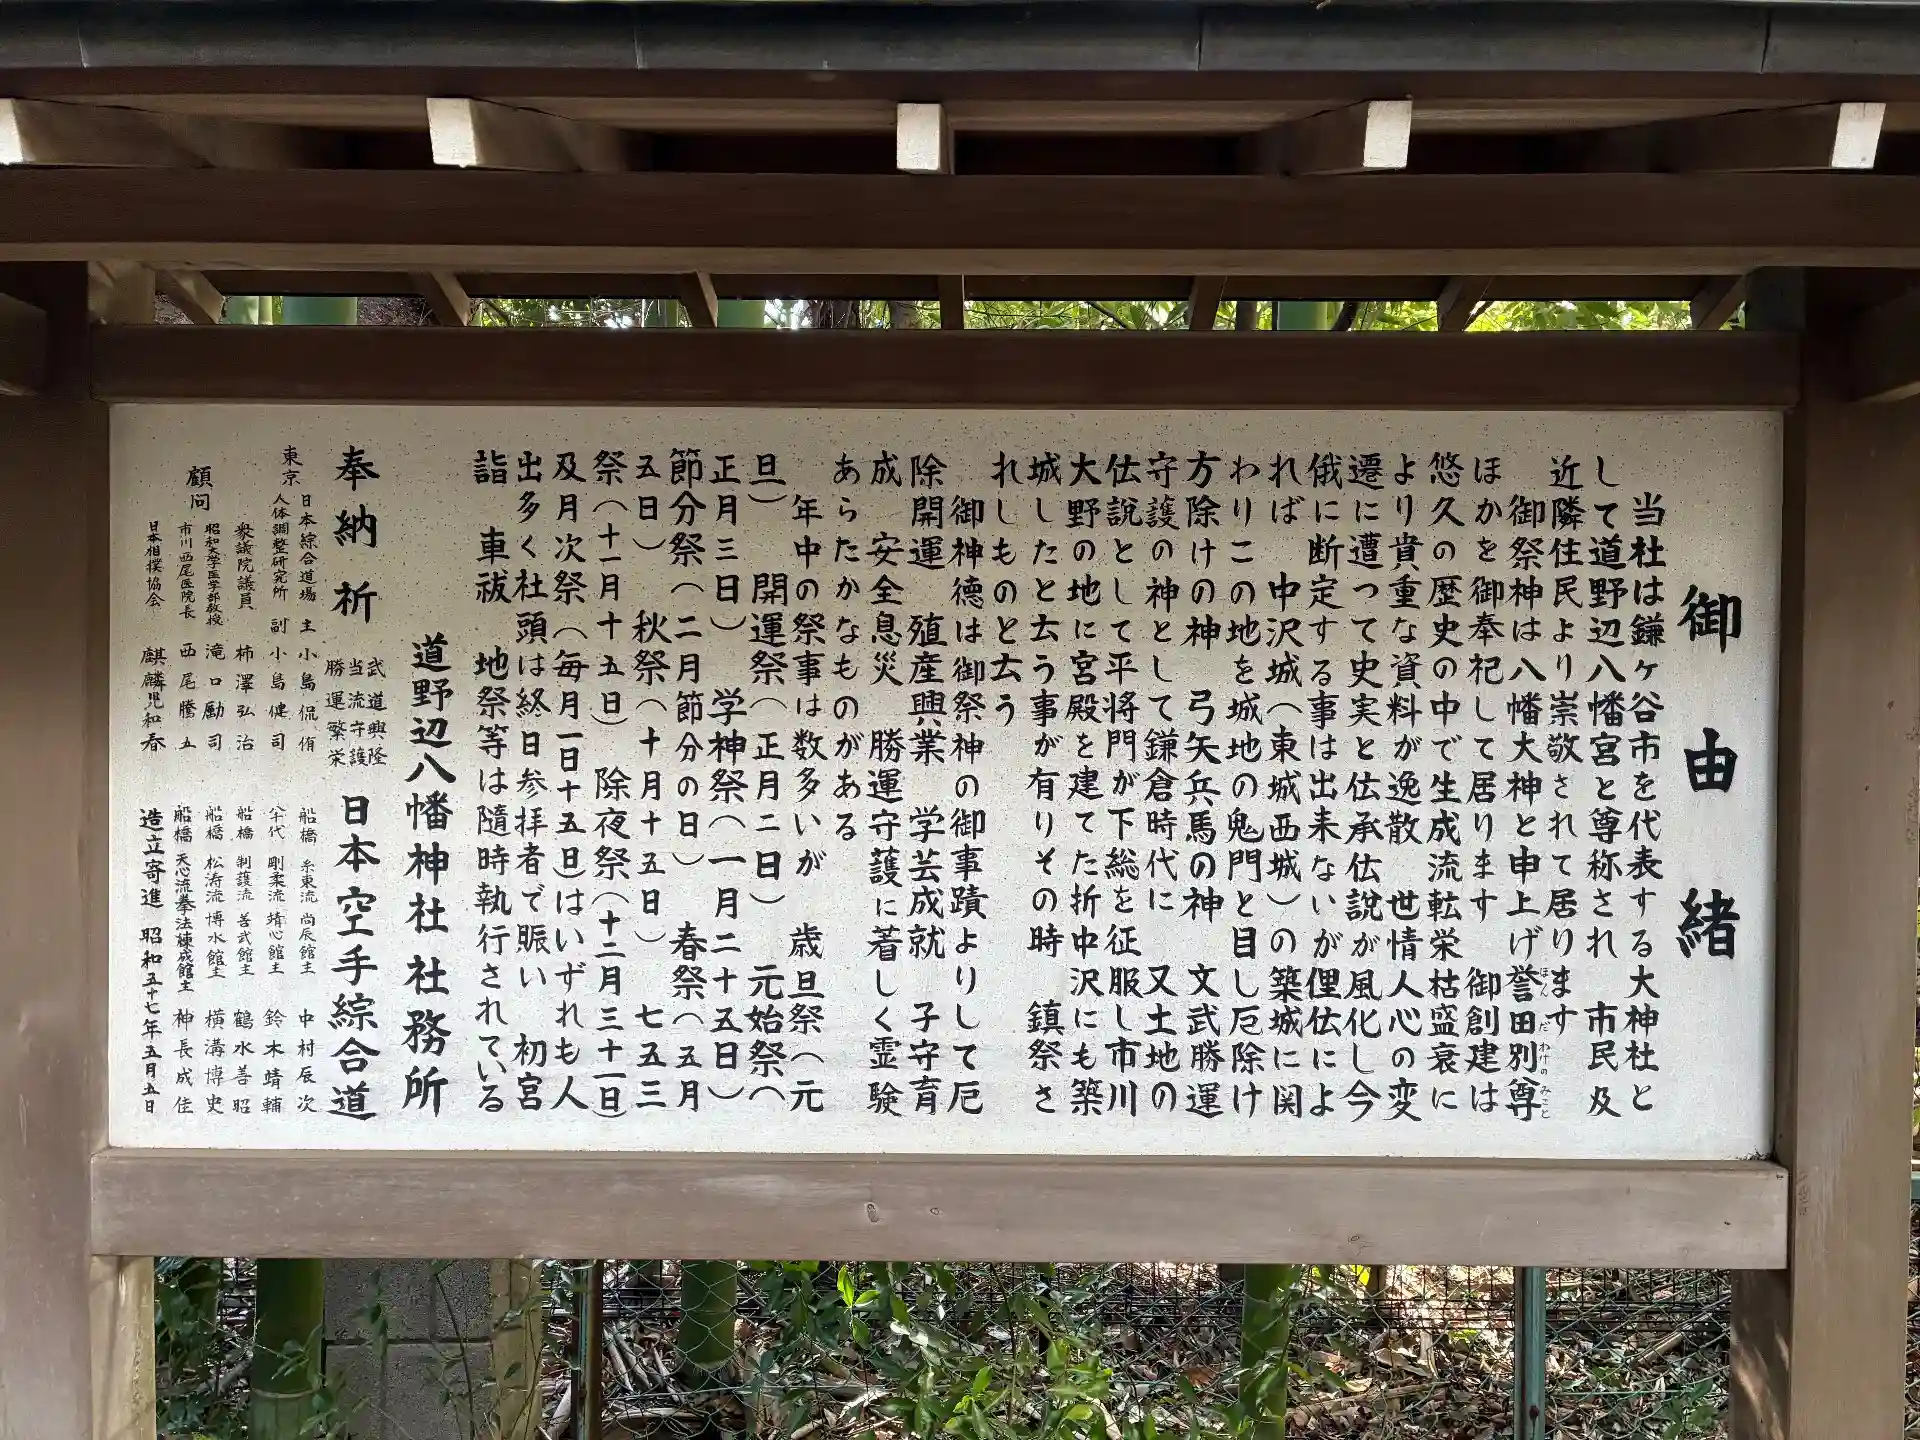 御由緒
当社は鎌ヶ谷市を代表する大神社と
して道野辺八幡宮と尊称され 市民及
近隣住民より崇敬されて居ります
御祭神は八幡大神と申上げ誉田別尊
ほんだわけのみこと
ほかを御奉祀して居ります 御創建は
悠久の歴史の中で生成流転栄枯盛衰に
より貴重な資料が逸散 世情人心の変
遷に遭って史実と伝承伝説が風化し今
俄に断定する事は出来ないが俚伝によ
れば 中沢城(東城西城)の築城に関
わりこの地を城地の鬼門と目し厄除け
方除けの神 弓矢兵馬の神 文武勝運
守護の神として鎌倉時代に 又土地の
伝説として平将門が下総を征服し市川
大野の地に宮殿を建てた折中沢にも築
城したと云う事が有りその時 鎮祭さ
れしものと云う
御神徳は御祭神の御事蹟よりして厄
除開運 殖産興業 学芸成就 子守育
成 安全息災 勝運守護に着しく霊験
あらたかなものがある
年中の祭事は数多いが 歳旦祭(元
旦) 開運祭(正月二日) 元始祭(
正月三日) 学神祭(一月二十五日)
節分祭(二月節分の日) 春祭(五月
五日) 秋祭(十月十五日) 七五三
祭(十一月十五日) 除夜祭(十二月三十一日)
及月次祭(毎月一日十五日)はいずれも人
出多く社頭は終日参拝者で賑い 初宮
詣 車祓 地祭等は隨時執行されている
道野辺八幡神社社務所
奉納 祈 武道興隆 当流守護 勝運繁栄 日本空手綜合道
東京 日本綜合道場 主 小島侃侑 船橋 糸東流 尚辰館主 中村辰次
人体調整研究所 副 小島健司 八千代 剛柔流 靖心館主 鈴木靖輔
顧問 衆議院議員 柿澤弘治 船橋 制護流 善武館主 鶴水善昭
昭和大学医学部教授 滝口勵司 船橋 松涛流 博水館主 横溝博史
市川西尾医院長 西尾騰五 船橋 天心流拳法棟成館主 神長成佳
日本相撲協会 麒麟児和春 造立寄進 昭和五十七年五月五日